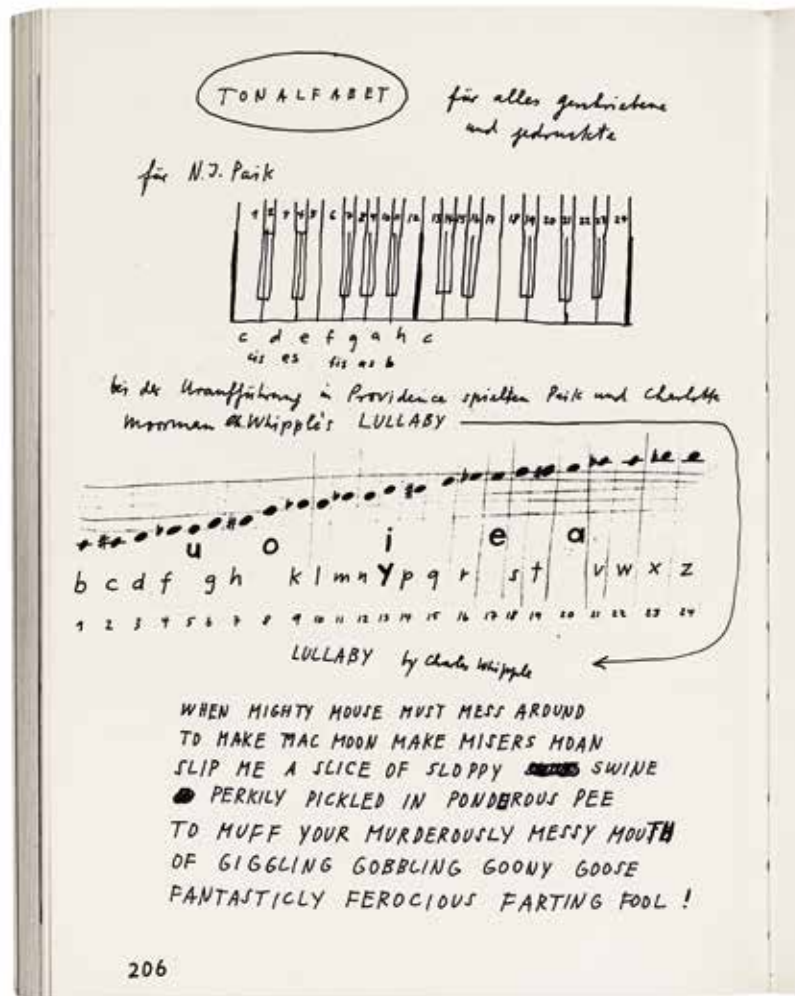 TONALFABET
für alles geschriebene
und gedruckte
für N.J. Paik
1 2 3 4 5 6 7 8 9 10 11 12 13 14 15 16 17 18 19 20 21 22 23 24
c d e f g a h c
cis es fis as b
bei der Uraufführung in Providence spielten Paik und Charlotte
Moorman Whipple's LULLABY
u o i e a
b c d f g h k l m n y p q r s t v w x z
1 2 3 4 5 6 7 8 9 10 11 12 13 14 15 16 17 18 19 20 21 22 23 24
LULLABY by Charles Whipple
WHEN MIGHTY MOUSE MUST MESS AROUND
TO MAKE MAC MOON MAKE MISERS MOAN
SLIP ME A SLICE OF SLOPPY SWINE
PERKILY PICKLED IN PONDEROUS PEE
TO MUFF YOUR MURDEROUSLY MESSY MOUTH
OF GIGGLING GOBBLING GOONY GOOSE
FANTASTICLY FEROCIOUS FARTING FOOL !
206